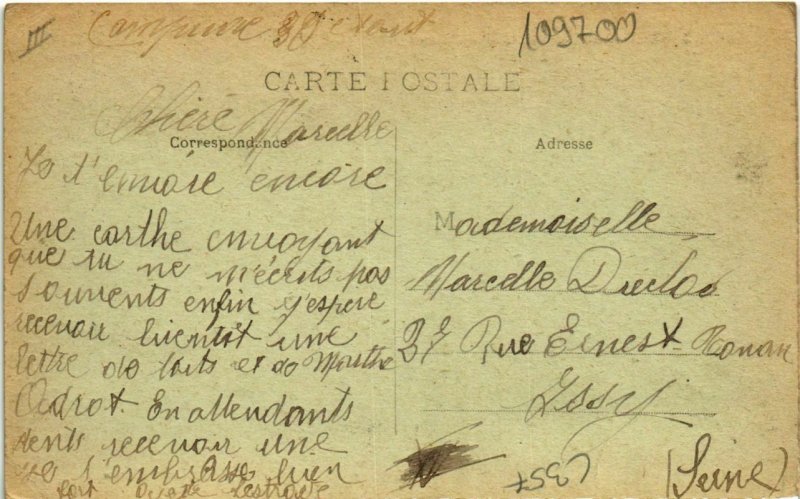 III
109700
CARTE POSTALE
Chère Marcelle
Correspondance
Je t'envoie encore
Une carthe envoyant
que tu ne m'écrits pas
souvents enfin j'espère
recevoir bientôt une
lettre de toits et de Marthe
En attendants
recevoir une
je t'embrasse bien
fort
Adresse
Mademoiselle
Marcelle Duclos
37 Rue Ernest Renan
Issy
(Seine)